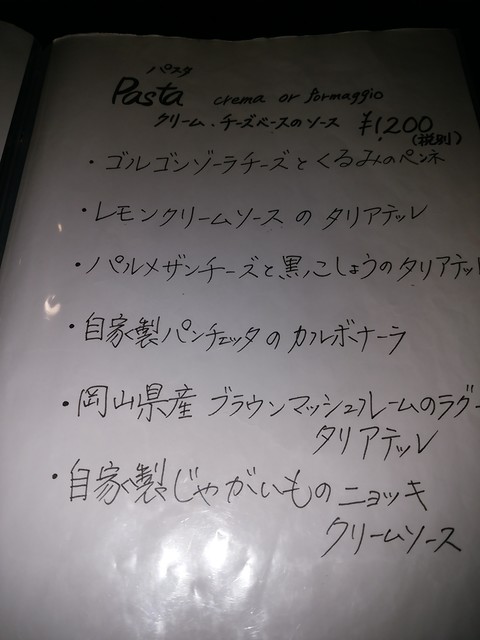 パスタ
Pasta crema or formaggio
クリーム・チーズベースのソース ¥1,200
(税別)
・ゴルゴンゾーラチーズとくるみのペンネ
・レモンクリームソースのタリアテッレ
・パルメザンチーズと黒こしょうのタリアテッレ
・自家製パンチェッタのカルボナーラ
・岡山県産ブラウンマッシュルームのラグー
タリアテッレ
・自家製じゃがいものニョッキ
クリームソース